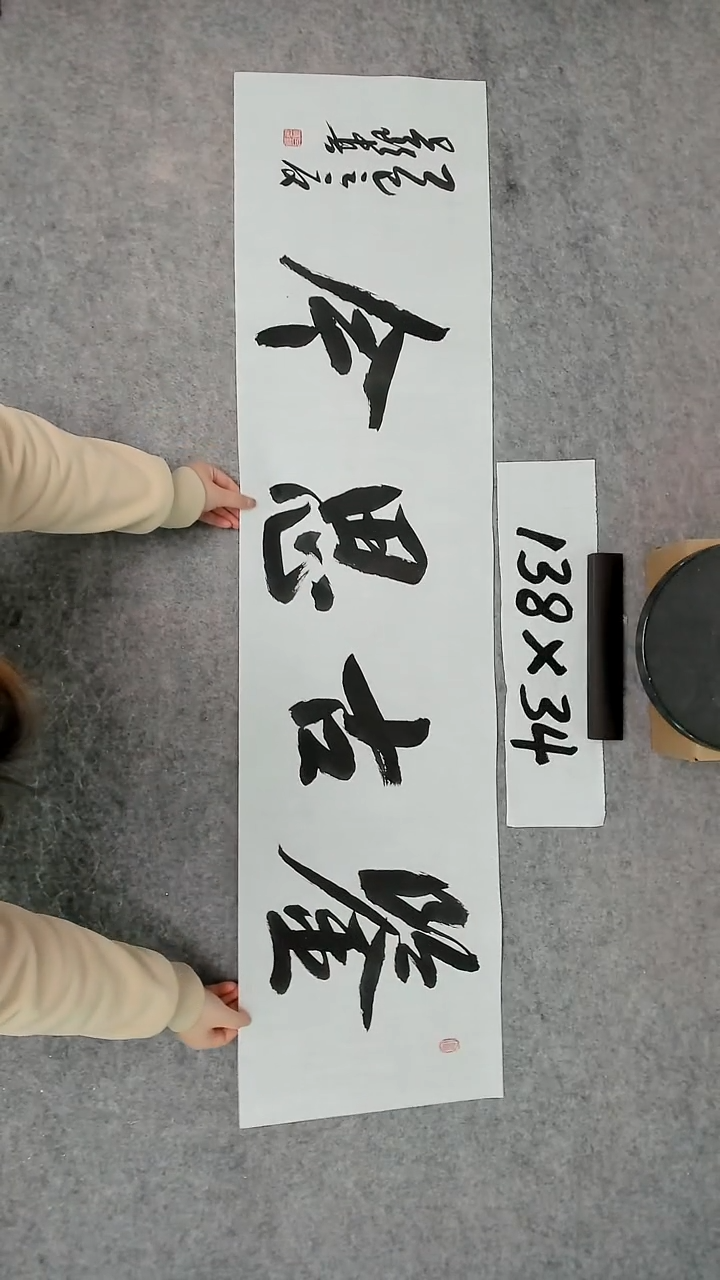 鑒古思今
138×34